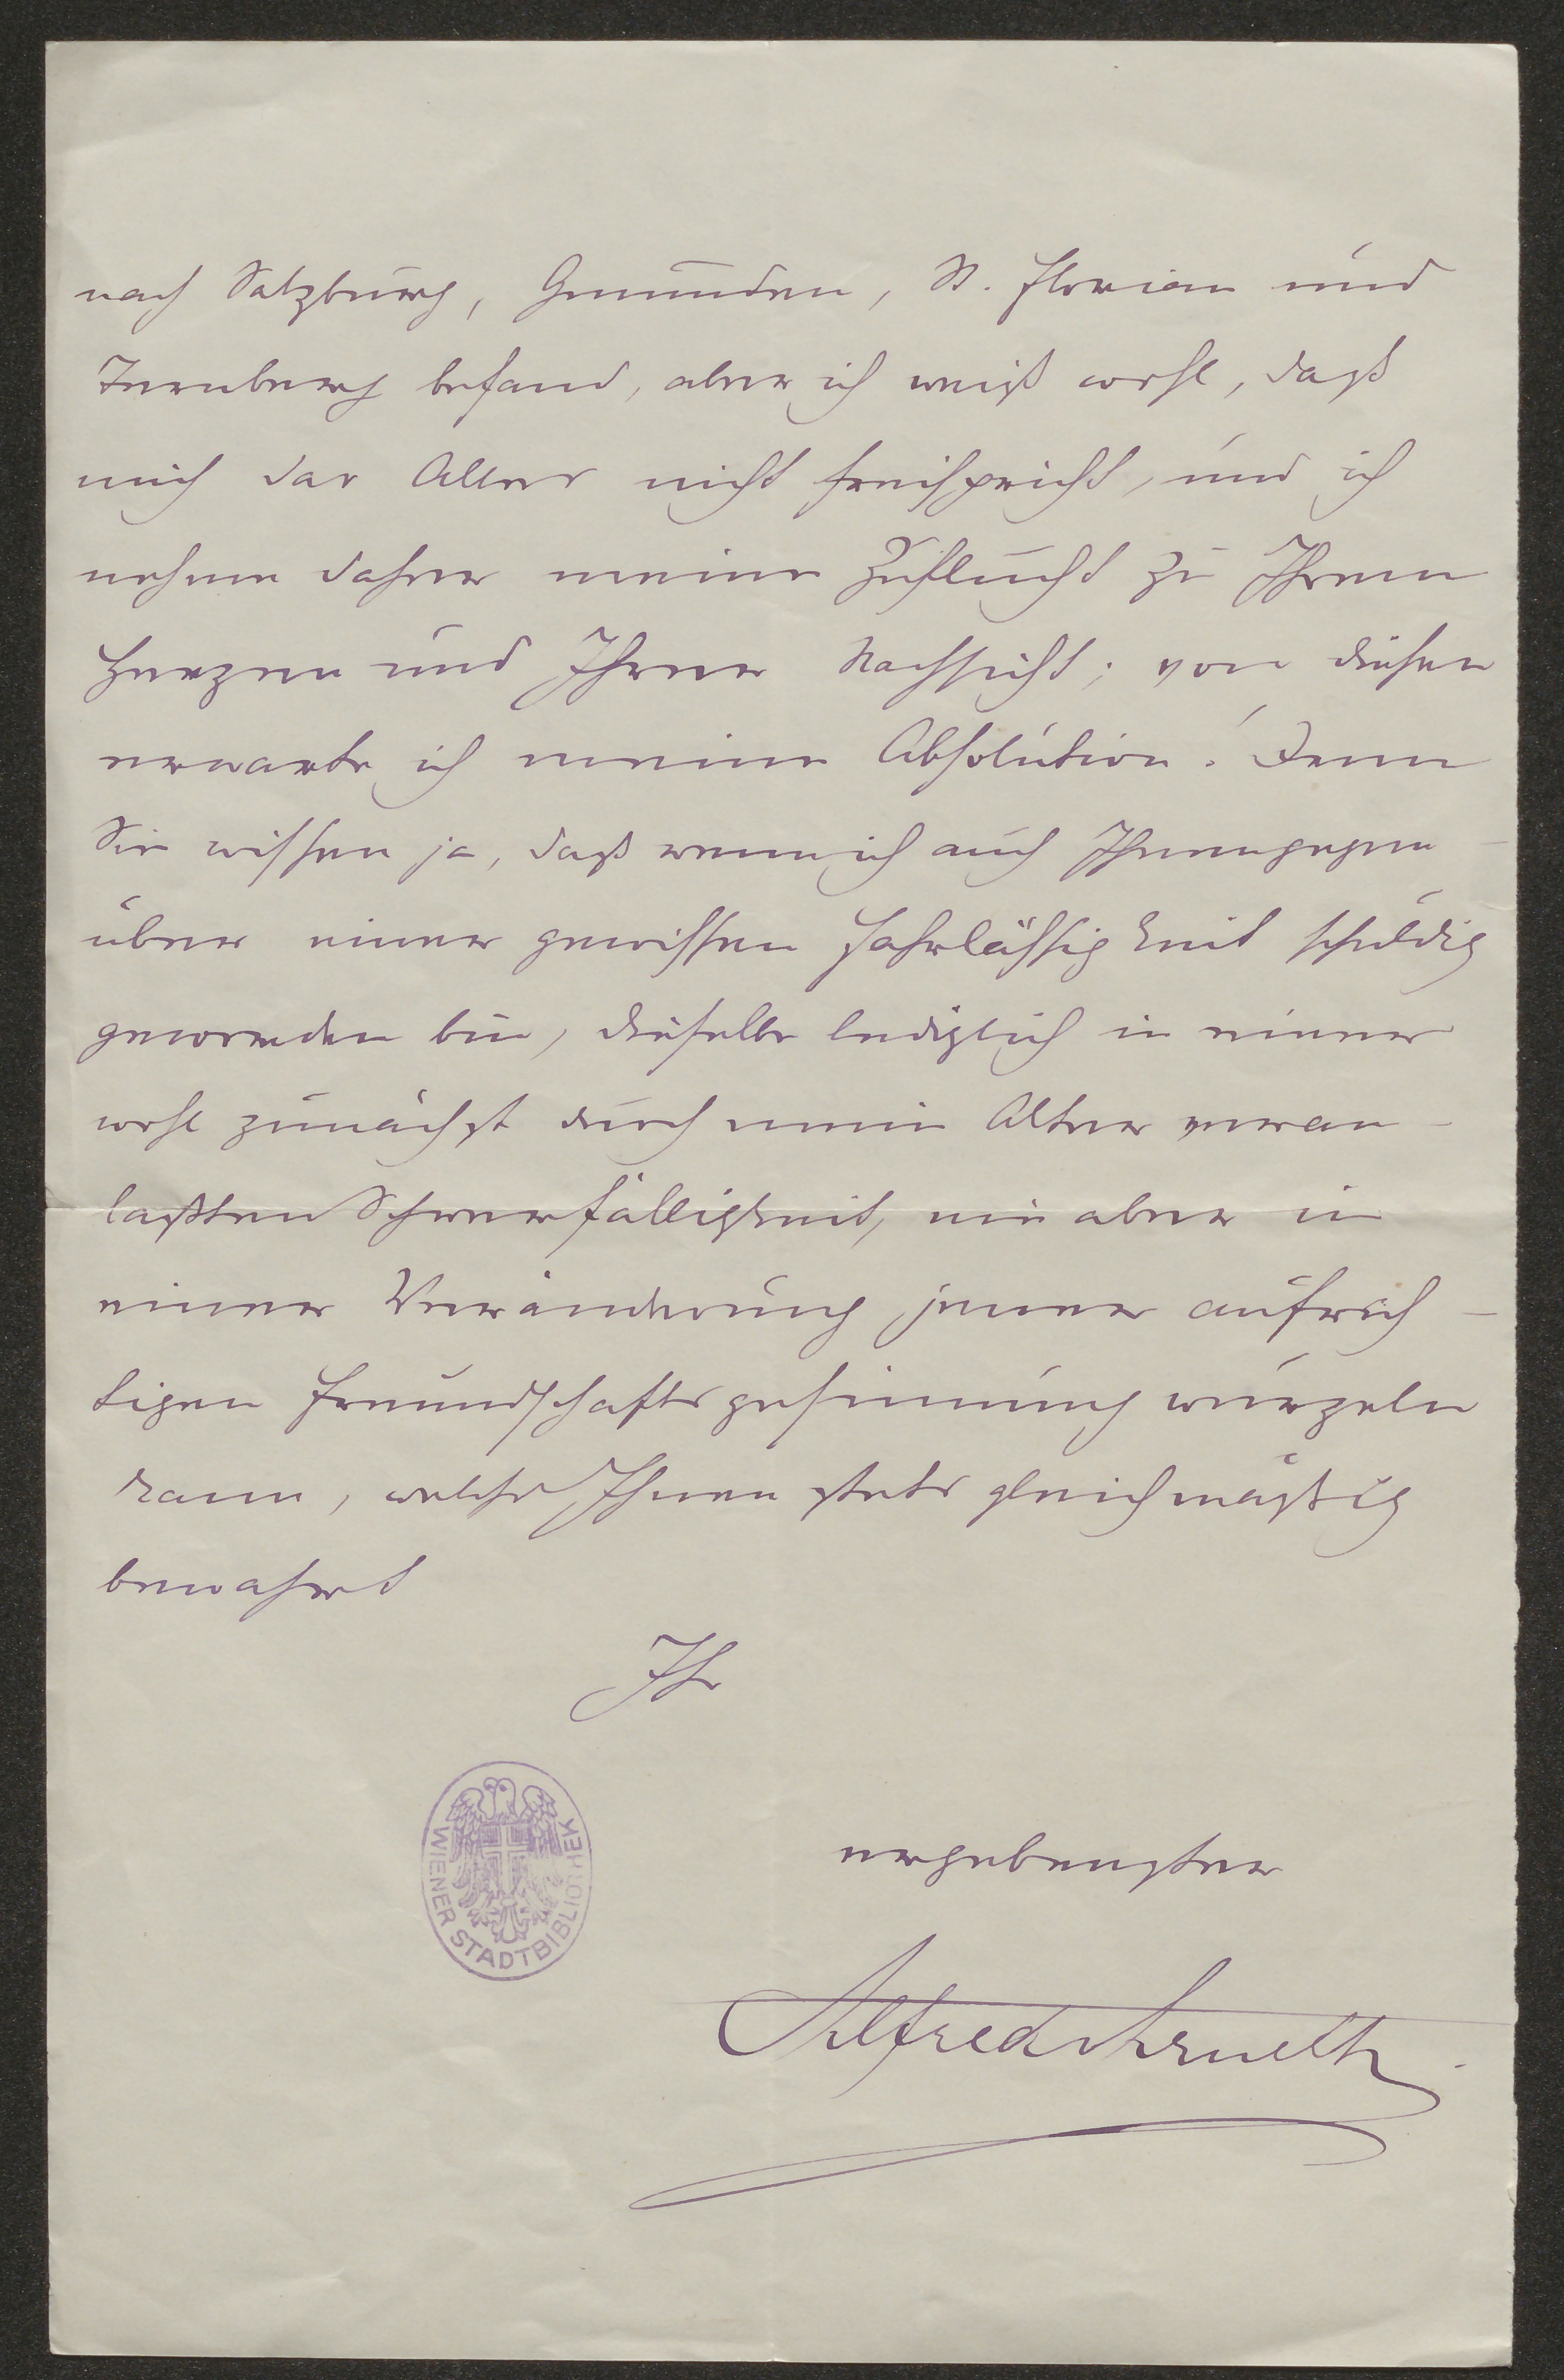 nach Salzburg, Gmunden, St. Florian und
Ternberg befand, aber ich weiß wohl, daß
mich das Alles nicht freispricht, und ich
nehme daher meine Zuflucht zu Ihrem
Herzen und Ihrer Nachsicht; von diesen
erwarte ich meine Absolution. Denn
Sie wissen ja, daß wenn ich auch Ihnen gegen-
über einer gewissen Fahrlässigkeit schuldig
geworden bin, dieselbe lediglich in einer
wohl zunächst durch mein Alter veran-
laßten Schwerfälligkeit, nie aber in
einer Veränderung jener aufrich-
tigen Freundschaftsgesinnung wurzeln
kann, welche Ihnen stets gleichmäßig
bewahrt
Ihr
ergebenster
Alfred Arneth
WIENER STADTBIBLIOTHEK